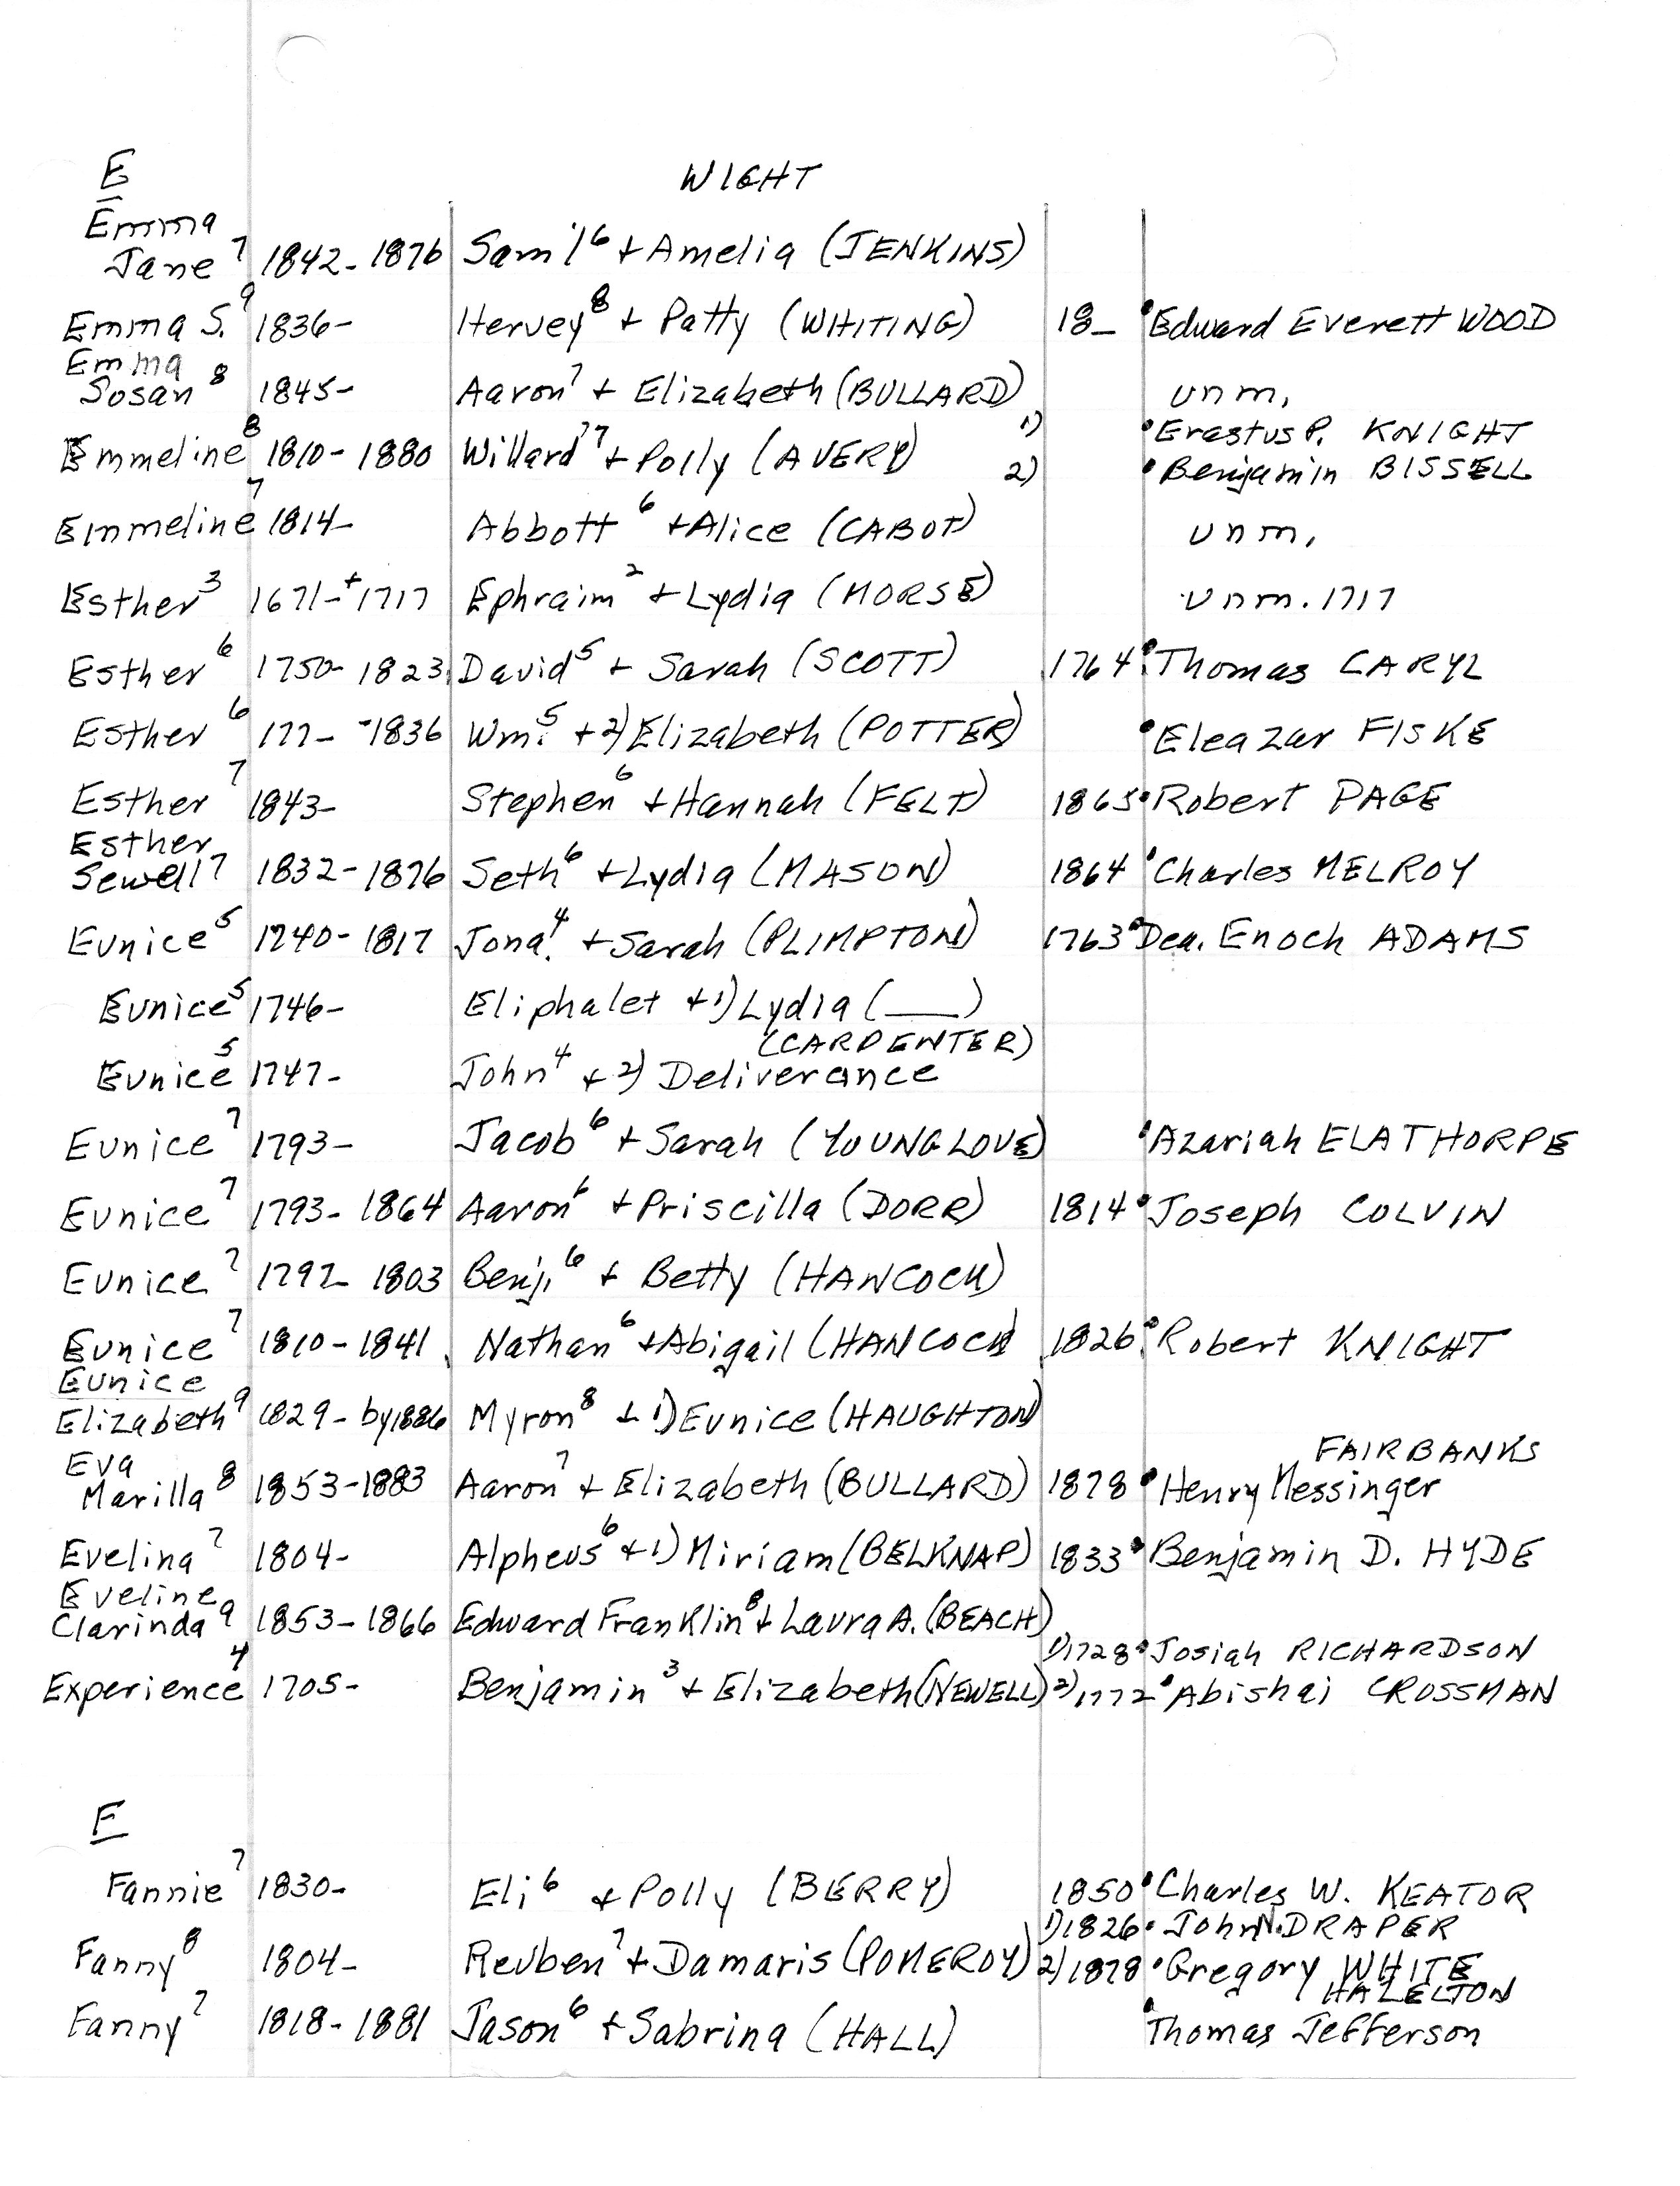 E
WIGHT
Emma
Jane⁷ 1842- 1876 Sam'l⁶ + Amelia (JENKINS)
Emma S.⁹ 1836- Hervey⁸ + Patty (WHITING) 18_ •Edward Everett WOOD
Emma
Susan⁸ 1845- Aaron⁷ + Elizabeth (BULLARD) unm.
1) •Erastus P. KNIGHT
Emmeline⁸ 1810- 1880 Willard⁷ + Polly (AVERY)
2) •Benjamin BISSELL
Emmeline⁷ 1814- Abbott⁶ + Alice (CABOT) unm.
Esther³ 1671-⁺1717 Ephraim² + Lydia (MORSE) unm. 1717
Esther⁶ 1750- 1823 David⁵ + Sarah (SCOTT) 1764 •Thomas CARYL
Esther⁶ 177_ -1836 Wm.⁵ + 2) Elizabeth (POTTER) •Eleazar FISKE
Esther⁷ 1843- Stephen⁶ + Hannah (FELT) 1865 •Robert PAGE
Esther
Sewell⁷ 1832- 1876 Seth⁶ + Lydia (MASON) 1864 •Charles MELROY
Eunice⁵ 1740- 1817 Jona.⁴ + Sarah (PLIMPTON) 1763 •Dea. Enoch ADAMS
Eunice⁵ 1746- Eliphalet + 1) Lydia (___)
(CARPENTER)
Eunice⁵ 1747- John⁴ + 2) Deliverance
Eunice⁷ 1793- Jacob⁶ + Sarah (YOUNGLOVE) •Azariah ELATHORPE
Eunice⁷ 1793- 1864 Aaron⁶ + Priscilla (DORR) 1814 •Joseph COLVIN
Eunice⁷ 1797- 1803 Benj.⁶ + Betty (HANCOCK)
Eunice⁷ 1810- 1841 Nathan⁶ + Abigail (HANCOCK) 1826 •Robert KNIGHT
Eunice
Elizabeth⁹ 1829- by 1886 Myron⁸ + 1) Eunice (HAUGHTON)
Eva FAIRBANKS
Marilla⁸ 1853-1883 Aaron⁷ + Elizabeth (BULLARD) 1878 •Henry Messinger
Evelina⁷ 1804- Alpheus⁶ + 1) Miriam (BELKNAP) 1833 •Benjamin D. HYDE
Eveline
Clarinda⁹ 1853- 1866 Edward Franklin⁸ + Laura A. (BEACH)
1) 1728 •Josiah RICHARDSON
Experience⁴ 1705- Benjamin³ + Elizabeth (NEWELL) 2) 1772 •Abishai CROSSMAN
F
Fannie⁷ 1830- Eli⁶ + Polly (BERRY) 1850 •Charles W. KEATOR
1) 1826 •John N. DRAPER
Fanny⁸ 1804- Reuben⁷ + Damaris (POMEROY) 2) 1878 •Gregory WHITE
HAZELTON
Fanny⁷ 1818- 1881 Jason⁶ + Sabrina (HALL) •Thomas Jefferson